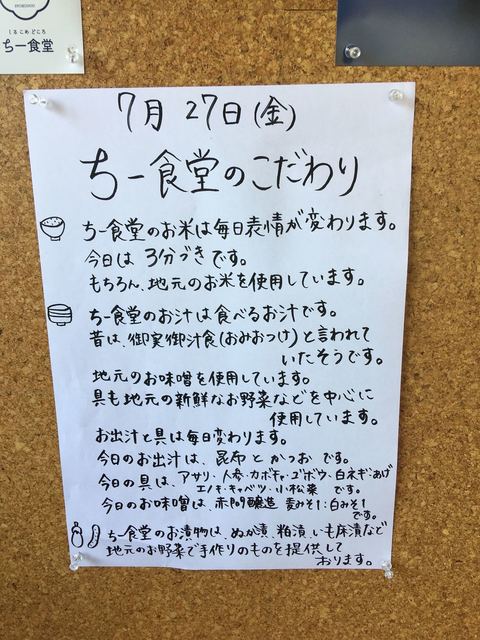 しる こめ どころ
ちー食堂
7月 27日(金)
ちー食堂のこだわり
ちー食堂のお米は毎日表情が変わります。
今日は 3分づきです。
もちろん、地元のお米を使用しています。
ちー食堂のお汁は食べるお汁です。
昔は、御実御汁食(おみおつけ)と言われて
いたそうです。
地元のお味噌を使用しています。
具も地元の新鮮なお野菜などを中心に
使用しています。
お出汁と具は毎日変わります。
今日のお出汁は、昆布とかつお です。
今日の具は、アサリ・人参・カボチャ・ゴボウ・白ネギ・あげ
エノキ・キャベツ・小松菜 です。
今日のお味噌は、醸造 麦みそ1:白みそ1
です。
ちー食堂のお漬物は、ぬか漬、粕漬、いも床漬など
地元のお野菜で手作りのものを提供して
おります。